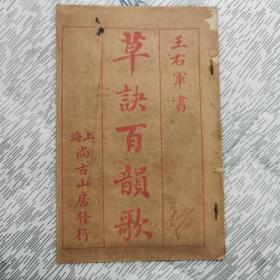 王右軍書
草訣百韻歌
上海尚古山房發行